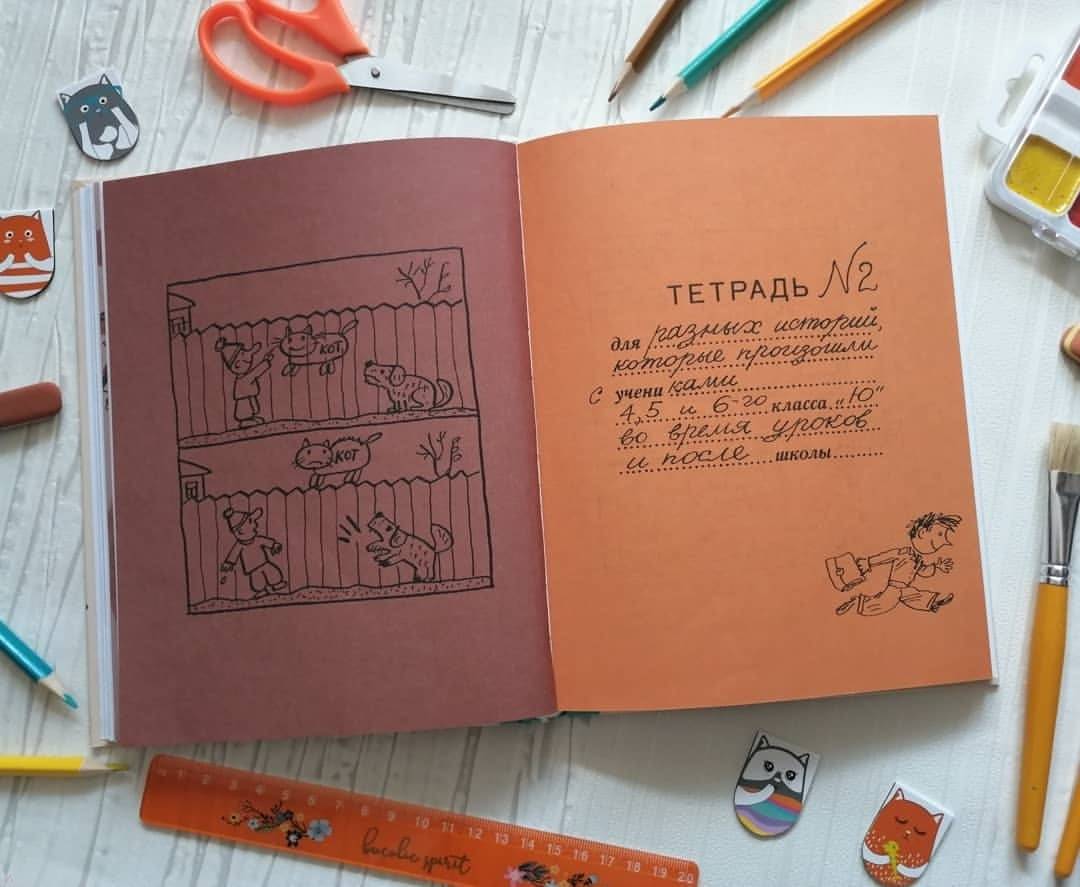 КОТ
КОТ
ТЕТРАДЬ N2
для разных историй,
которые произошли
с учениками
4,5 и 6-го класса „Ю"
во время уроков
и после школы
1 2 3 4 5 6 7 8 9 10 11 12 13 14 15 16 17 18 19 20
bucolic spirit